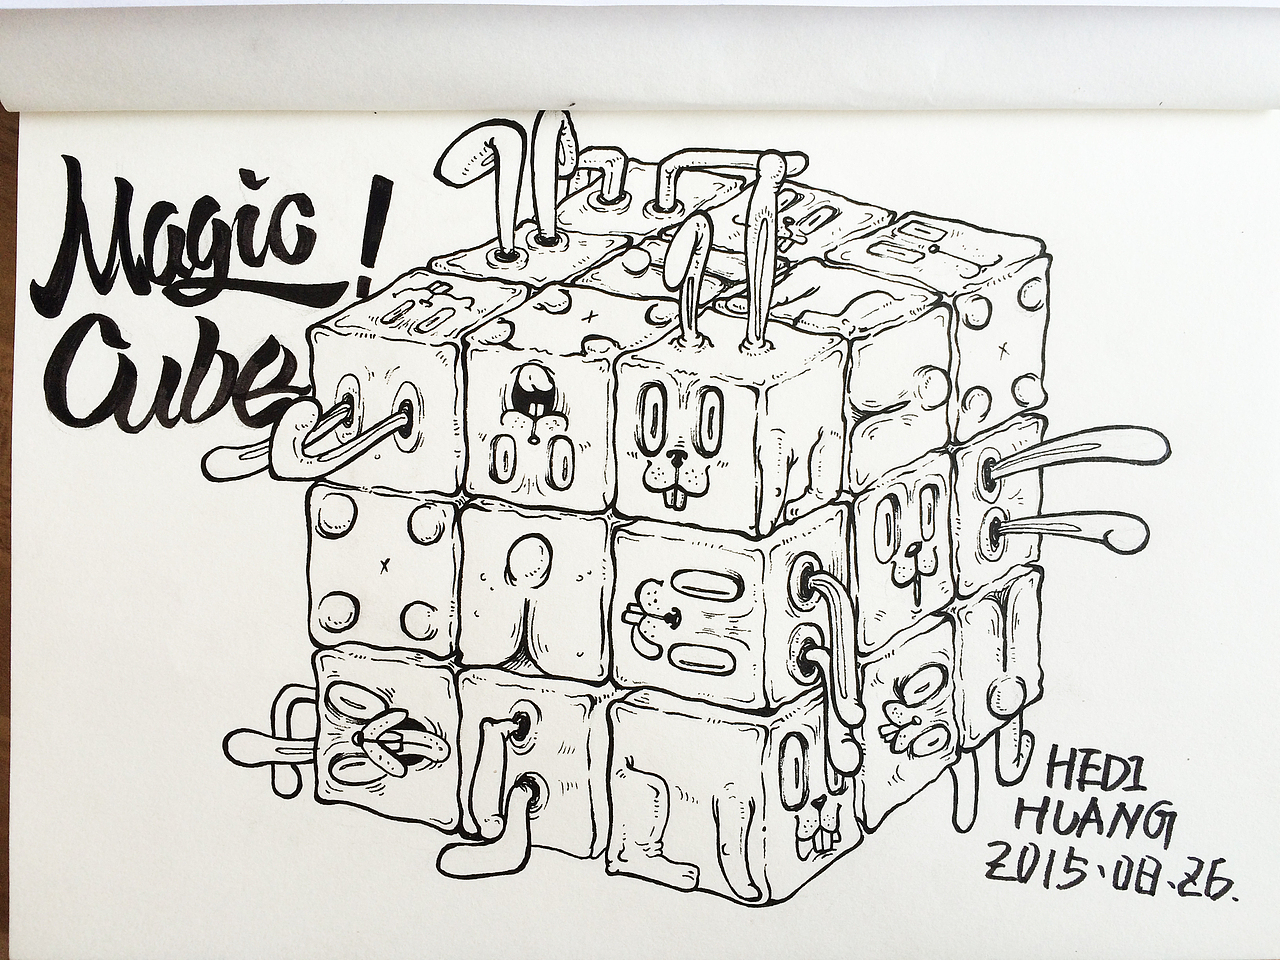 Magic!
Cube
HEDI
HUANG
2015.08.26.